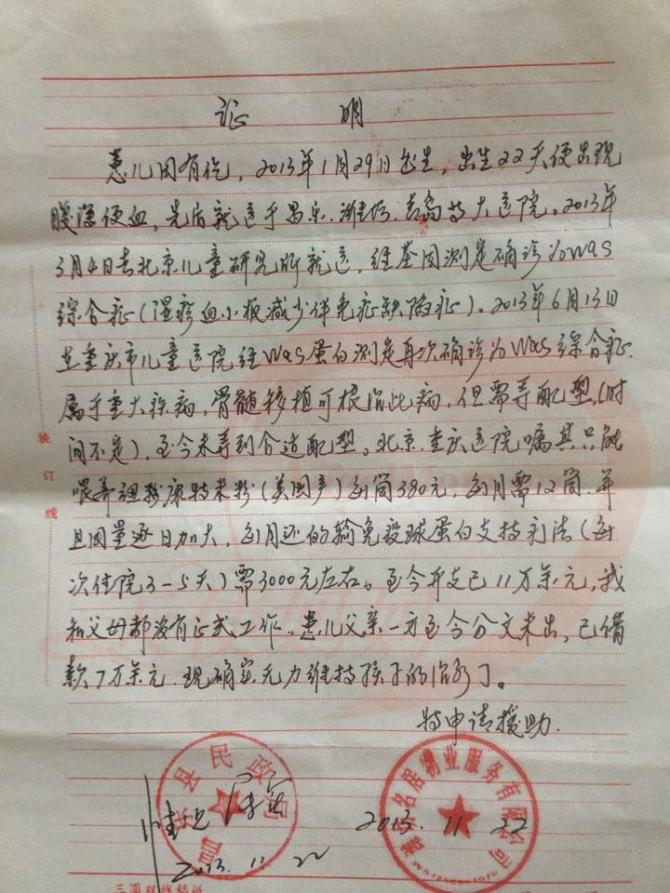 证 明
患儿田有佗，2013年1月29日出生，出生22天便出现
腹泻便血，先后就医于昌乐、潍坊、青岛等大医院。2013年
3月4日去北京儿童研究所就医，经基因测定确诊为was
综合症（湿疹血小板减少伴免疫缺陷症）。2013年6月13日
至重庆市儿童医院经Was蛋白测定再次确诊为Was综合症
属于重大疾病，骨髓移植可根治此病，但需寻配型，（时
间不定），至今未寻到合适配型。北京、重庆医院嘱其只能
喂养纽康特米粉（美国产）每筒380元，每月需12筒，并
且用量逐日加大，每月还的输免疫球蛋白支持疗法（每
次住院3-5天）需3000元左右。至今开支已11万余元，我
和父母都没有正式工作。患儿父亲一方至今分文未出，已借
款7万余元，现确实无力维持孩子的治疗了。
特申请援助。
县民政局
名居物业服务有限公司
情况属实
2013.11.22
2013.11.22
装订线